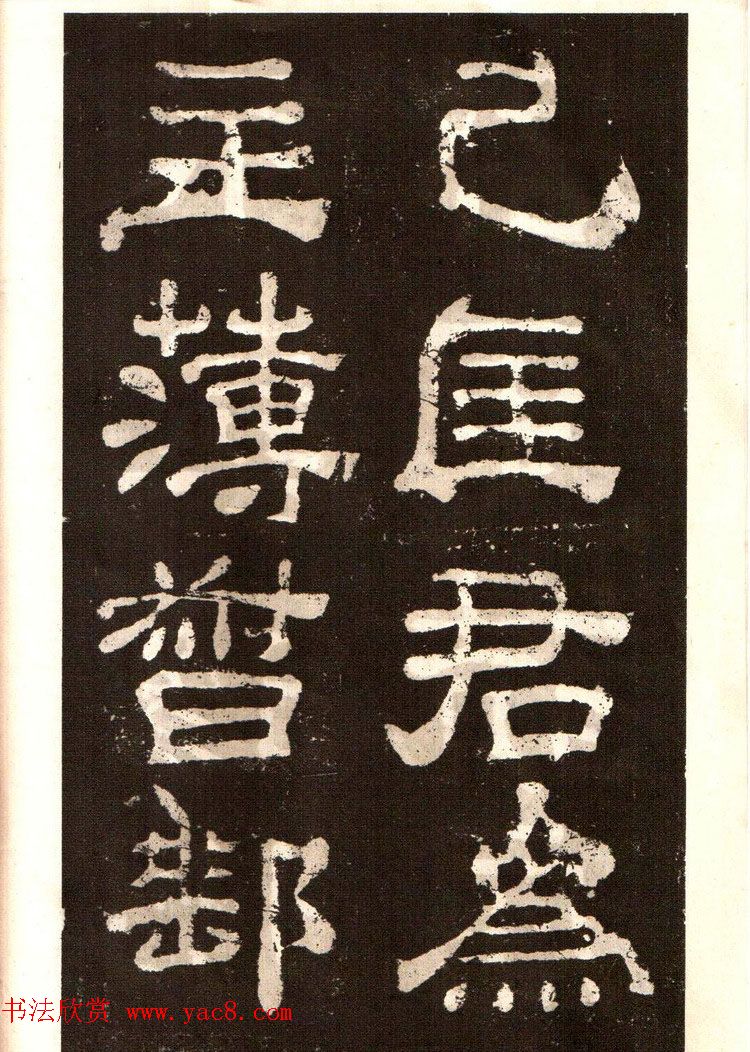 己匡君為
主薄督郵
书法欣赏 www.yac8.com